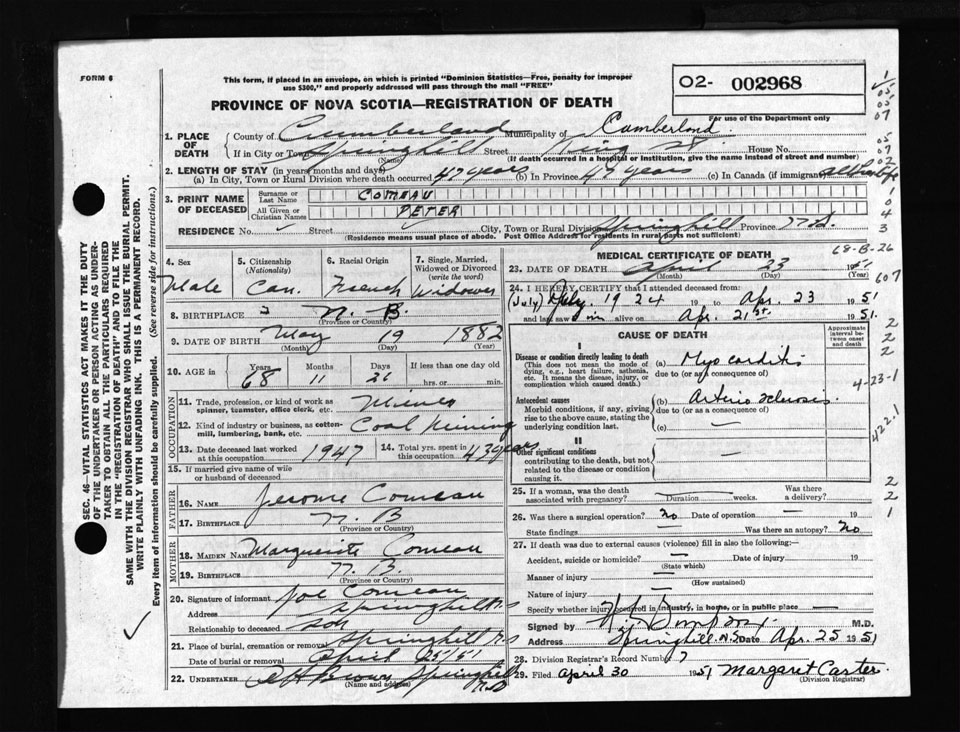 FORM 6
This form, if placed in an envelope, on which is printed "Dominion Statistics—Free, penalty for improper
use $300," and properly addressed will pass through the mail "FREE"
O2- 002968
For use of the Department only
PROVINCE OF NOVA SCOTIA—REGISTRATION OF DEATH
1. PLACE OF DEATH County of Cumberland Municipality of Cumberland
If in City or Town Springhill Street King St. House No.
(Name) (If death occurred in a hospital or institution, give the name instead of street and number)
2. LENGTH OF STAY (in years, months and days)
(a) In City, Town or Rural Division where death occurred 47 years (b) In Province 47 years (c) In Canada (if immigrant) all his life
3. PRINT NAME OF DECEASED Surname or Last Name COMEAU
All Given or Christian Names PETER
RESIDENCE No. Street City, Town or Rural Division Springhill Province N.S.
(Residence means usual place of abode. Post Office Address for residents in rural parts not sufficient)
4. Sex Male
5. Citizenship (Nationality) Can.
6. Racial Origin French
7. Single, Married, Widowed or Divorced (write the word) Widower
8. BIRTHPLACE N. B.
(Province or Country)
9. DATE OF BIRTH May 19 1882
(Month) (Day) (Year)
10. AGE in Years 68 Months 11 Days If less than one day old
hrs. or min.
OCCUPATION
11. Trade, profession or kind of work as
spinner, teamster, office clerk, etc. Miner
12. Kind of industry or business, as cotton-
mill, lumbering, bank, etc. Coal Mining
13. Date deceased last worked at this occupation 1947 14. Total yrs. spent in this occupation 43 years
15. If married give name of wife
or husband of deceased
FATHER
16. NAME Jerome Comeau
17. BIRTHPLACE N. B
(Province or Country)
MOTHER
18. MAIDEN NAME Marguerite Comeau
19. BIRTHPLACE N. B.
(Province or Country)
20. Signature of informant Joe Comeau
Address Springhill N S
Relationship to deceased Son
21. Place of burial, cremation or removal Springhill N.S
Date of burial or removal April 25/51
22. UNDERTAKER Brown Springhill
(Name and address) N.S
MEDICAL CERTIFICATE OF DEATH
68-B-26
23. DATE OF DEATH April 23 1951
(Month) (Day) (Year)
24. I HEREBY CERTIFY that I attended deceased from:
(July) July 1924 19 to Apr. 23 1951
and last saw him alive on Apr. 21st. 1951.
CAUSE OF DEATH
Approximate interval between onset and death
I
Disease or condition directly leading to death
(This does not mean the mode of
dying, e.g., heart failure, asthenia,
etc. It means the disease, injury, or
complication which caused death.)
(a) Myocarditis
due to (or as a consequence of)
Antecedent causes
Morbid conditions, if any, giving
rise to the above cause, stating the
underlying condition last.
(b) Arterio sclerosis
due to (or as a consequence of)
(c) —
II
Other significant conditions
contributing to the death, but not
related to the disease or condition
causing it. —
25. If a woman, was the death
associated with pregnancy? Duration weeks. Was there a delivery?
26. Was there a surgical operation? no Date of operation — 19
State findings — Was there an autopsy? no
27. If death was due to external causes (violence) fill in also the following:—
Accident, suicide or homicide? — Date of injury 19
(State which)
Manner of injury —
(How sustained)
Nature of injury —
Specify whether injury occurred in industry, in home, or in public place —
Signed by M.D.
Address Springhill. N.S. Date Apr. 25 1951
28. Division Registrar's Record Number 7
29. Filed April 30 1951 Margaret Carter.
(Division Registrar)
1
05
05
07
05
07
02
1
0
4
3
607
2
2
2
4-23-1
422-1
2
2
1
SEC. 46—VITAL STATISTICS ACT MAKES IT THE DUTY
OF THE UNDERTAKER OR PERSON ACTING AS UNDER-
TAKER TO OBTAIN ALL THE PARTICULARS REQUIRED
IN THE "REGISTRATION OF DEATH" AND TO FILE THE
SAME WITH THE DIVISION REGISTRAR WHO SHALL ISSUE THE BURIAL PERMIT.
WRITE PLAINLY WITH UNFADING INK. THIS IS A PERMANENT RECORD.
Every item of information should be carefully supplied. (See reverse side for instructions.)